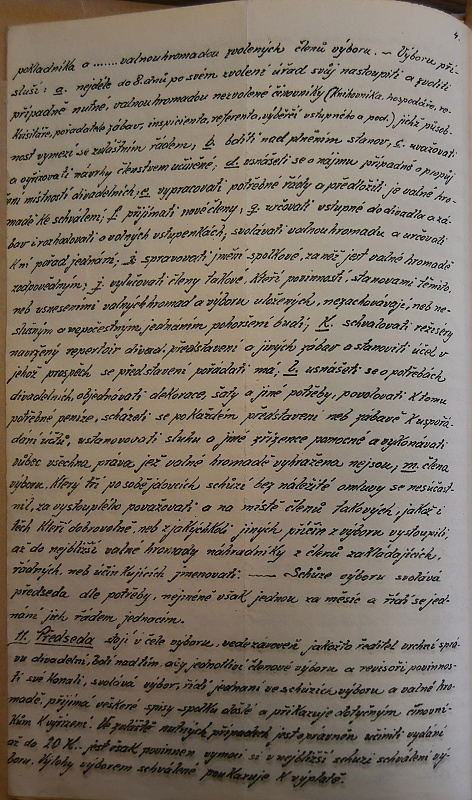 4.
pokladníka a ....... valnou hromadou zvolených členů výboru. ~ Výboru pří-
sluší: a. nejdéle do 8. dnů po svém zvolení úřad svůj nastoupiti a zvoliti
případně nutné, valnou hromadou nezvolené činovníky (knihovníka, hospodáře, re-
kvisitáře, pořadatele zábav, inspicienta, referenta, výběrčí vstupného a pod.) jichž působ-
nost vymezí se zvláštním řádem, b. bdíti nad plněním stanov, c. uvažovati
a vyřizovati návrhy členstvem učiněné; d. usnášeti se o nájmu případně o propůj
čení místností divadelních; e. vypracovati potřebné řády a předložiti je valné hro-
madě ke schválení; f. přijímati nové členy, g. určovati vstupné do divadla a zá-
bav i rozhodovati o volných vstupenkách, svolávati valnou hromadu a určovati
k ní pořad jednání; spravovati jmění spolkové, za něž jest valné hromadě
zodpovědným; j. vylučovati členy takové, kteří povinností, stanovami těmito,
neb usneseními valných hromad a výboru uložených, nezachovávají, neb ne-
slušným a nepočestným jednáním pohoršení budí; k. schvalovati režiséry
navržený repertoir divad. představení a jiných zábav a stanoviti účel v
jehož prospěch se představení pořádati má; l. usnášeti se o potřebách
divadelních, objednávati dekorace, šaty a jiné potřeby, povolovati k tomu
potřebné peníze, scházeti se po každém představení neb zábavě k uspořá-
dání účtů, ustanovovati sluhu a jiné zřízence pomocné a vykonávati
vůbec všechna práva jež valné hromadě vyhražena nejsou, m. člena
výboru, který tří po sobě jdoucích schůzí bez náležité omluvy se nesúčast-
nil, za vystouplého považovati a na místě členů takových, jakož i
těch kteří dobrovolně, neb z jakýchkoli jiných příčin z výboru vystoupili,
až do nejbližší valné hromady náhradníky z členů zakládajících,
řádných, neb účinkujících jmenovati. —— Schůze výboru svolává
předseda dle potřeby, nejméně však jednou za měsíc a řídí se jed-
nání jich řádem jednacím.
11. Předseda stojí v čele výboru, vede zároveň jakožto ředitel vrchní sprá-
vu divadelní, bdí nad tím, aby jednotliví členové výboru a revisoři povinnos-
ti své konali, svolává výbor, řídí jednání ve schůzích výboru a valné hro-
madě, přijímá veškeré spisy spolku došlé a přikazuje dotyčným činovní-
kům k vyřízení. Ve zvláště nutných případech jest oprávněn učiniti vydání
až do 20 K. - jest však povinnen vymoci si v nejbližší schůzi schválení vý-
boru. Výlohy výborem schválené poukazuje k výplatě.